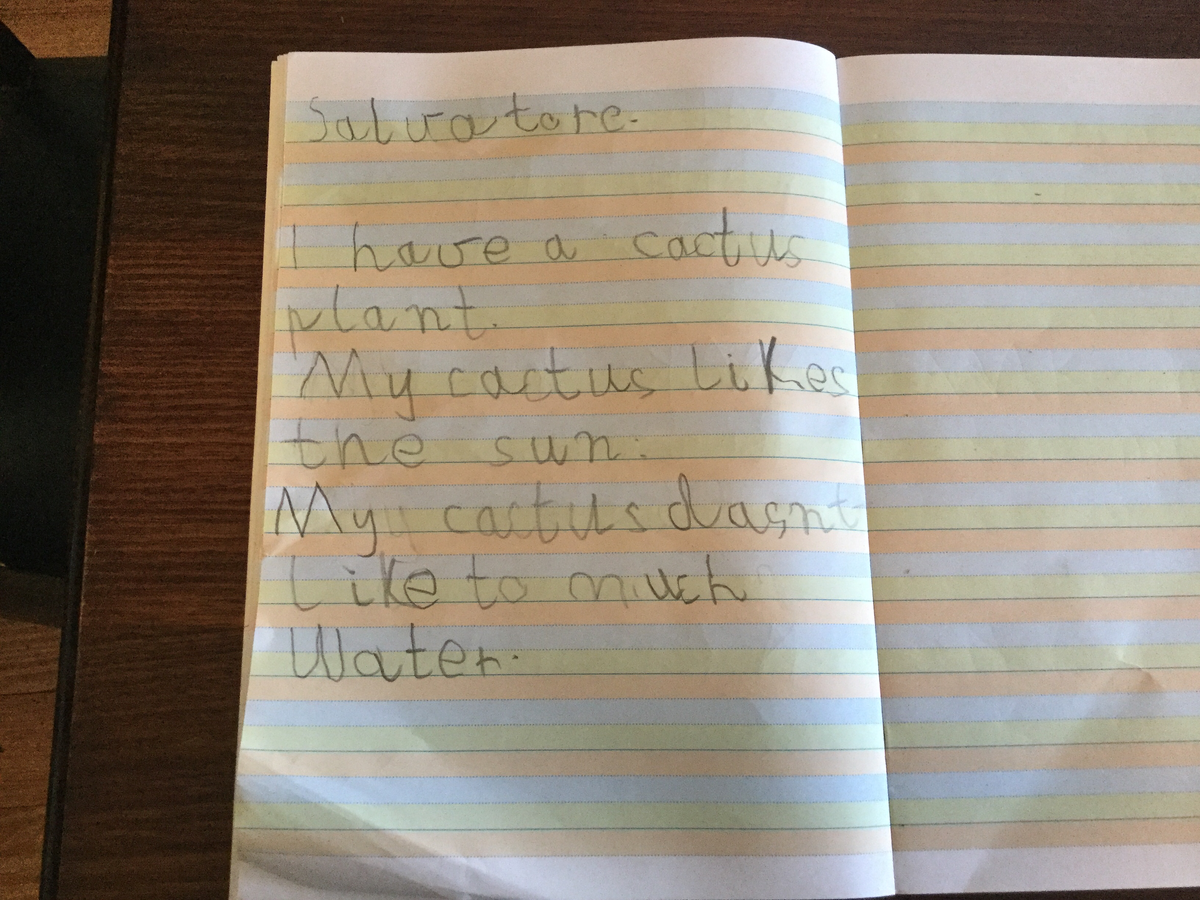 Salvatore.
I have a cactus
plant.
My cactus likes
the sun.
My cactus dasnt
like to much
Water.